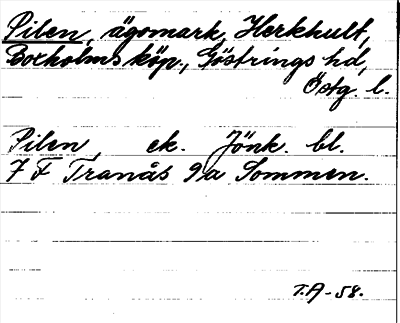 Pilen, ägomark, Herkhult,
Boxholms köp., Göstrings hd,
Östg. l.
Pilen, ek. Jönk. bl.
7 F Tranås 9a Sommen.
T.A-58.